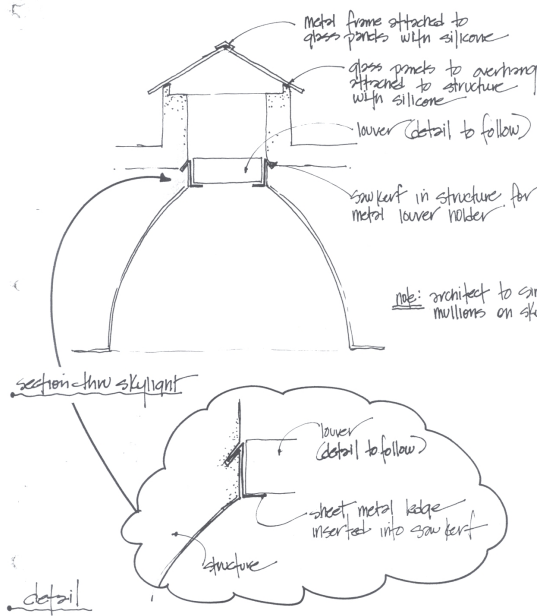 metal frame attached to
glass panels with silicone
glass panels to overhang
attached to structure
with silicone
louver (detail to follow)
saw kerf in structure for
metal louver holder
note: architect to
mullions on
section thru skylight
louver
(detail to follow)
sheet metal ledge
inserted into saw kerf
structure
detail